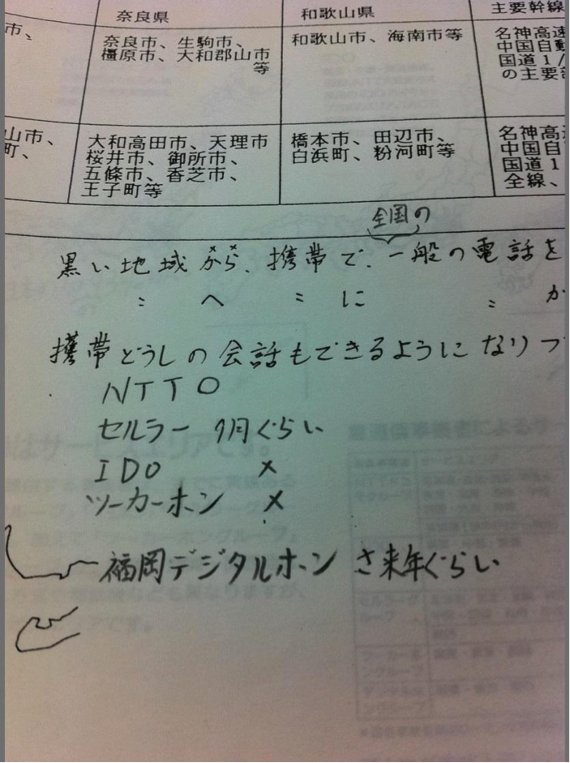 奈良県
和歌山県
主要幹線
市、
奈良市、生駒市、
橿原市、大和郡山市
等
和歌山市、海南市等
名神高速
中国自動
国道1/
の主要部
山市、
町、
大和高田市、天理市
桜井市、御所市、
五條市、香芝市、
王子町等
橋本市、田辺市、
白浜町、粉河町等
名神高速
中国自
国道1
全線、
全国の
黒い地域から、携帯で、一般の電話を
〃 へ 〃 に 〃 か
携帯どうしの会話もできるようになりつ
NTTO
セルラー 9月ぐらい
IDO ×
ツーカーホン ×
福岡デジタルホン さ来年ぐらい
はサービスエリアです。